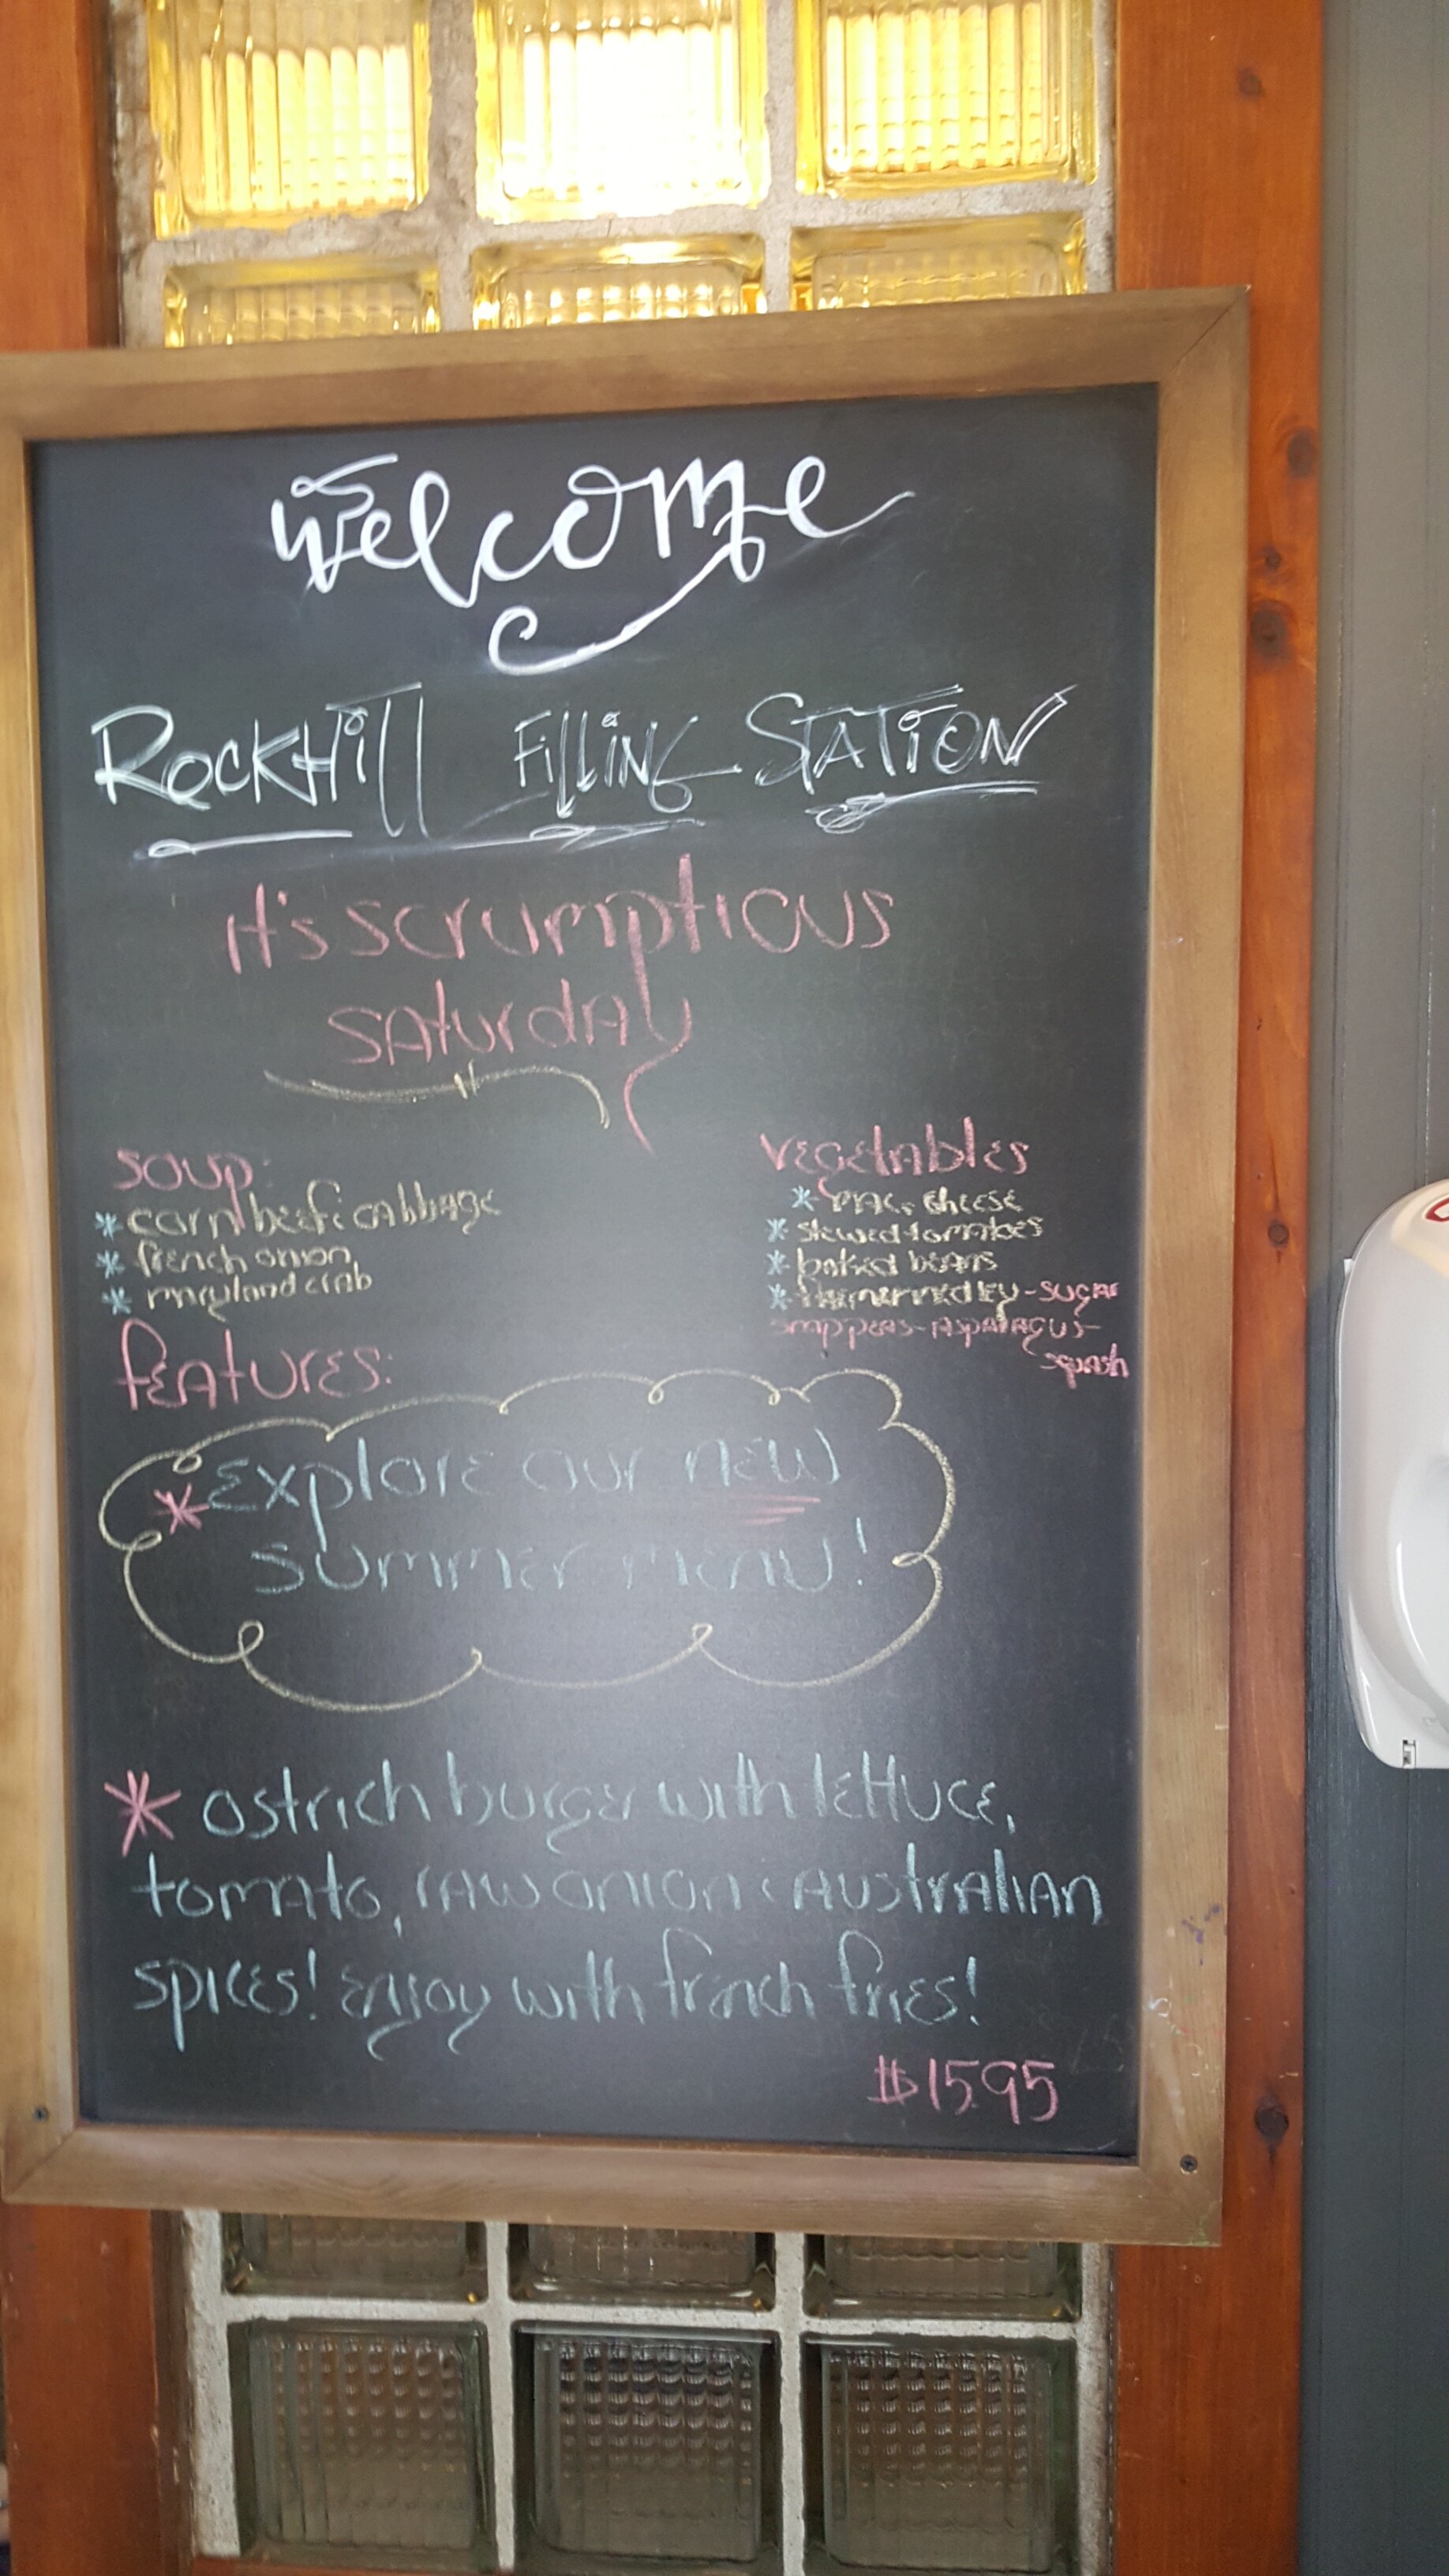 welcome
ROCKHill Filling STATiON
it's scrumptious
saturday
soup:
* corn beef & cabbage
* french onion
* maryland crab
vegetables
* mac & cheese
* stewed tomatoes
* baked beans
* -sugar
snappeas-asparagus-
squash
features:
* explore our new
summer menu!
* ostrich burger with lettuce,
tomato, raw onion & Australian
spices! enjoy with french fries!
$15.95